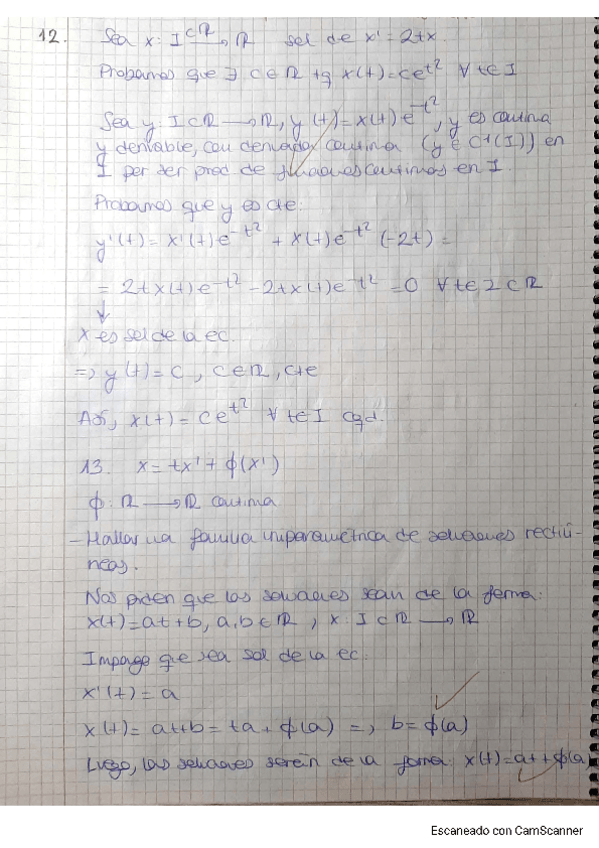 12. Sea x: I⊂ℝ → ℝ sol de x' = 2tx.
Probamos que ∃ c∈ℝ tq x(t)=ce^{t²} ∀t∈I
Sea y: I⊂ℝ → ℝ, y(t)=x(t)e^{-t²}, y es continua
y derivable, con derivada continua (y ∈ C¹(I)) en
I por ser prod de funciones continuas en I.
Probamos que y es cte:
y'(t) = x'(t)e^{-t²} + x(t)e^{-t²}(-2t) =
= 2tx(t)e^{-t²} - 2tx(t)e^{-t²} = 0 ∀t∈I⊂ℝ
↓
x es sol de la ec.
⇒ y(t) = c, c∈ℝ, cte
Así, x(t) = ce^{t²} ∀t∈I cqd.
13. x = tx' + ϕ(x')
ϕ: ℝ → ℝ continua
- Hallar una familia uniparamétrica de soluciones rectilí-
neas.
Nos piden que las soluciones sean de la forma:
x(t) = at + b, a, b∈ℝ, x: I⊂ℝ → ℝ
Impongo que sea sol de la ec:
x'(t) = a
x(t) = at+b = ta + ϕ(a) ⇒ b = ϕ(a)
Luego, las soluciones serán de la forma: x(t)=at+ϕ(a)
Escaneado con CamScanner